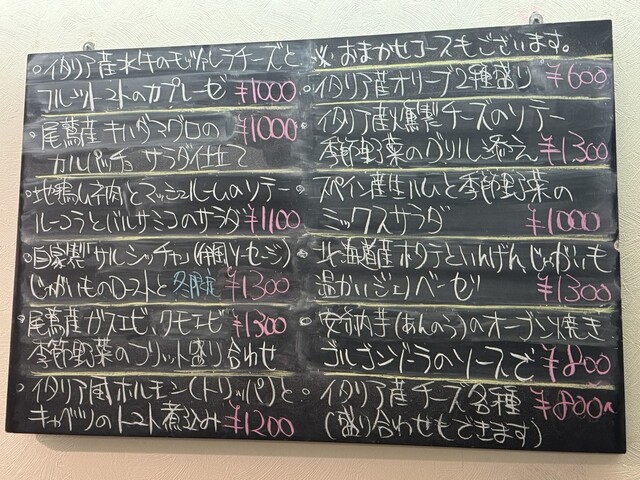 。イタリア産水牛のモッツァレラチーズと
フルーツトマトのカプレーゼ ¥1000
。尾鷲産キハダマグロの ¥1000
カルパッチョ サラダ仕立て
。地鴨ムネ肉とマッシュルームのソテー
ルーコラとバルサミコのサラダ ¥1100
。自家製サルシッチャ(腸詰ソーセージ)
じゃがいものローストと ¥1300
尾鷲産ガスエビ、クモエビ ¥1300
季節野菜のフリット盛り合わせ
。イタリア風ホルモン(トリッパ)と
キャベツのトマト煮込み ¥1200
※おまかせコースもございます。
。イタリア産オリーブ2種盛り ¥600
。イタリア産燻製チーズのソテー
季節野菜のグリル添え ¥1300
。スペイン産生ハムと季節野菜の
ミックスサラダ ¥1000
。北海道産ホタテといんげん、じゃがいも
温かいジェノベーゼ ¥1300
。安納芋(あんのう)のオーブン焼き
ゴルゴンゾーラのソースで ¥800
。イタリア産チーズ各種 ¥800〜
(盛り合わせもできます)